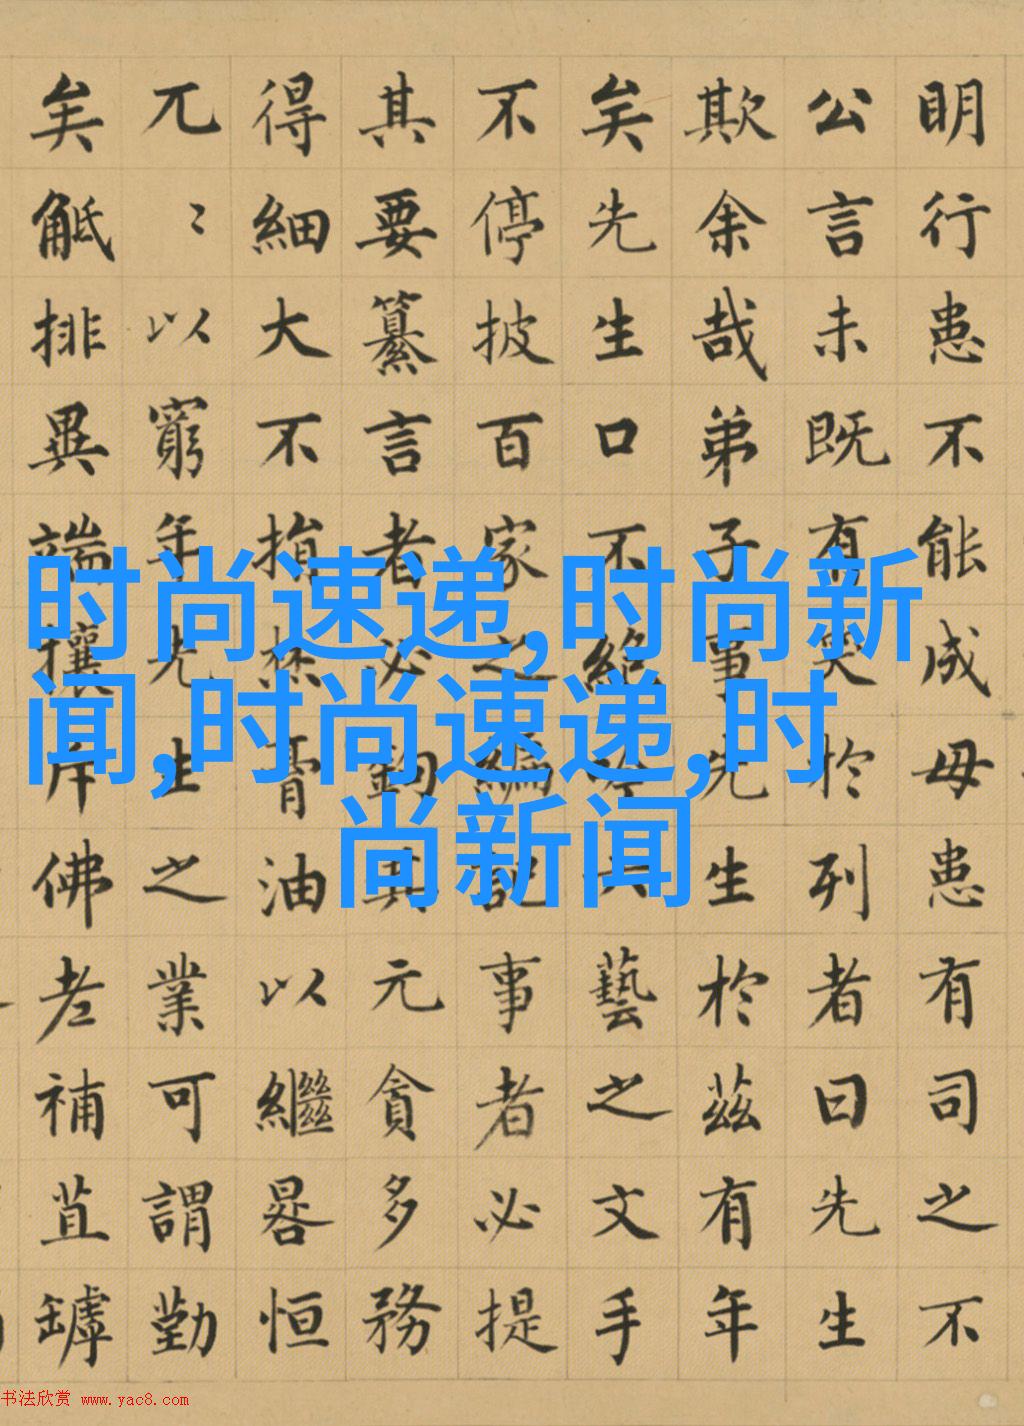 明行患不能成毋患有司之不
公言未既有笑於列者曰先生
欺余哉弟子事先生於茲有年
矣先生口不絶吟六藝之文手
不停披百家之編記事者必提
其要纂言者必鉤其元貪多務
得細大不捐焚膏油以繼晷恒
兀〻以窮年先生之業可謂勤
矣觝排異端攘斥佛老補苴罅
时尚速递,时尚新
闻,时尚速递,时
尚新闻
书法欣赏 www.yac8.com